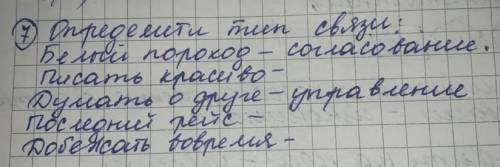 7) Определити тип связи:
Белый пороход - согласование.
Писать красиво -
Думать о друге - управление
Последний рейс -
Добежать вовремя -